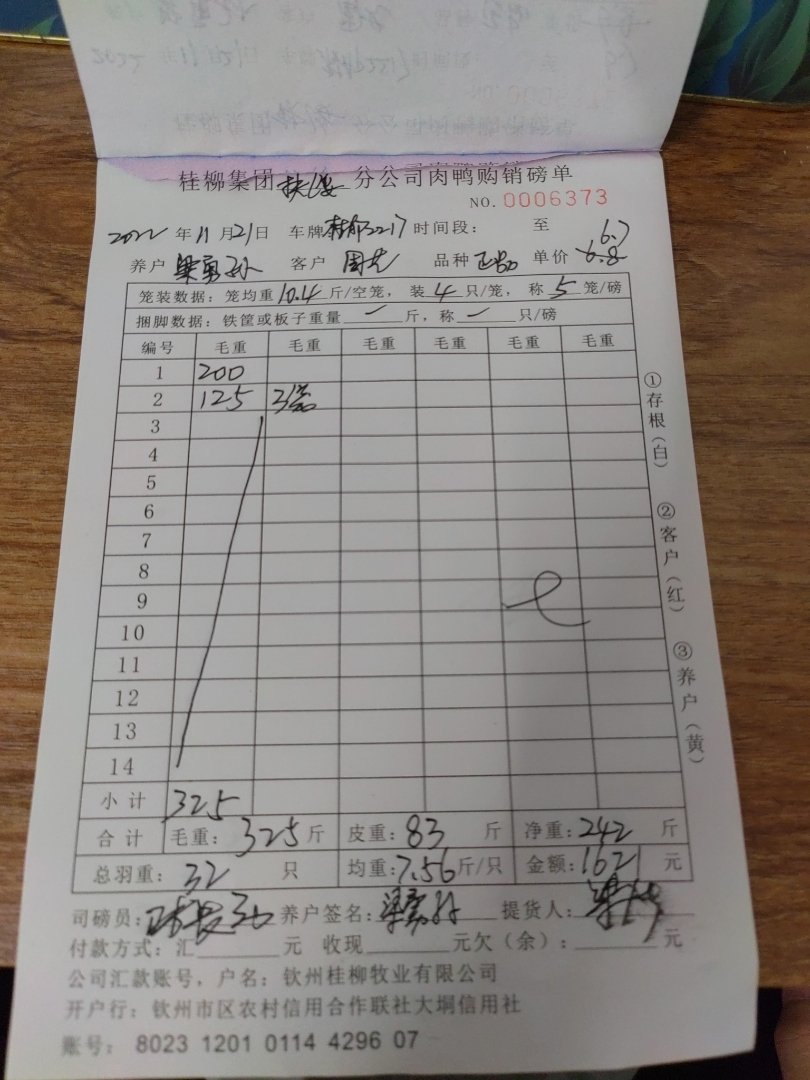 桂柳集团 扶绥 分公司肉鸭购销磅单
NO.0006373
2022 年 11 月 21 日 车牌 2217 时间段： 至 6.7
养户 梁勇孙 客户 周先 品种 正品 单价 6.8
笼装数据：笼均重 10.4 斤/空笼，装 4 只/笼，称 5 笼/磅
捆脚数据：铁筐或板子重量 — 斤，称 — 只/磅
编号 毛重 毛重 毛重 毛重 毛重 毛重
1 200
2 125 3笼
3
4
5
6
7
8
9
10
11
12
13
14
小计 325
合计 毛重：325 斤 皮重：83 斤 净重：242 斤
总羽重：32 只 均重：7.56 斤/只 金额：1621 元
司磅员： 养户签名：梁勇孙 提货人：
付款方式：汇 元 收现 元欠（余）： 元
公司汇款账号，户名：钦州桂柳牧业有限公司
开户行：钦州市区农村信用合作联社大垌信用社
账号：8023 1201 0114 4296 07
①存根（白）
②客户（红）
③养户（黄）